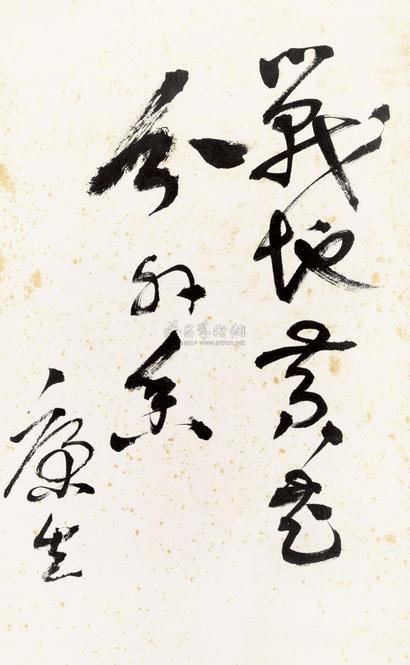 戰地黃花
分外香
康生
雅昌藝術網
www.artron.net